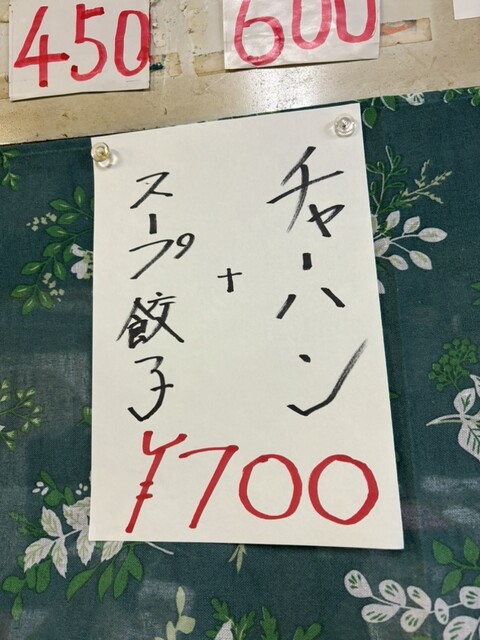 450
600
チャーハン
+
スープ餃子
¥700